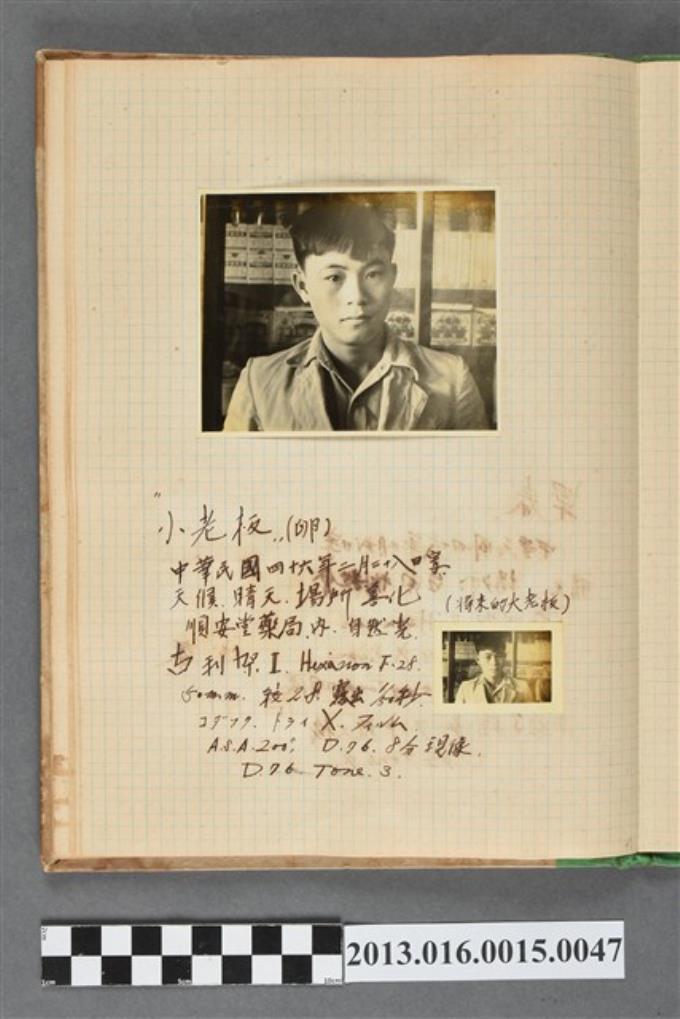 "小老板„(卵)
中華民國四十六年二月二十八日 
天候. 晴天. 場所 善化
順安堂藥局.內. 自然光.
(將來的大老板)
I. Hexanon F.2.8.
50mm. 2.8. 露出
コダック. トライ X. フィルム
A.S.A.200° D.76. 8分現像.
D.76 Tone. 3.
2013.016.0015.0047